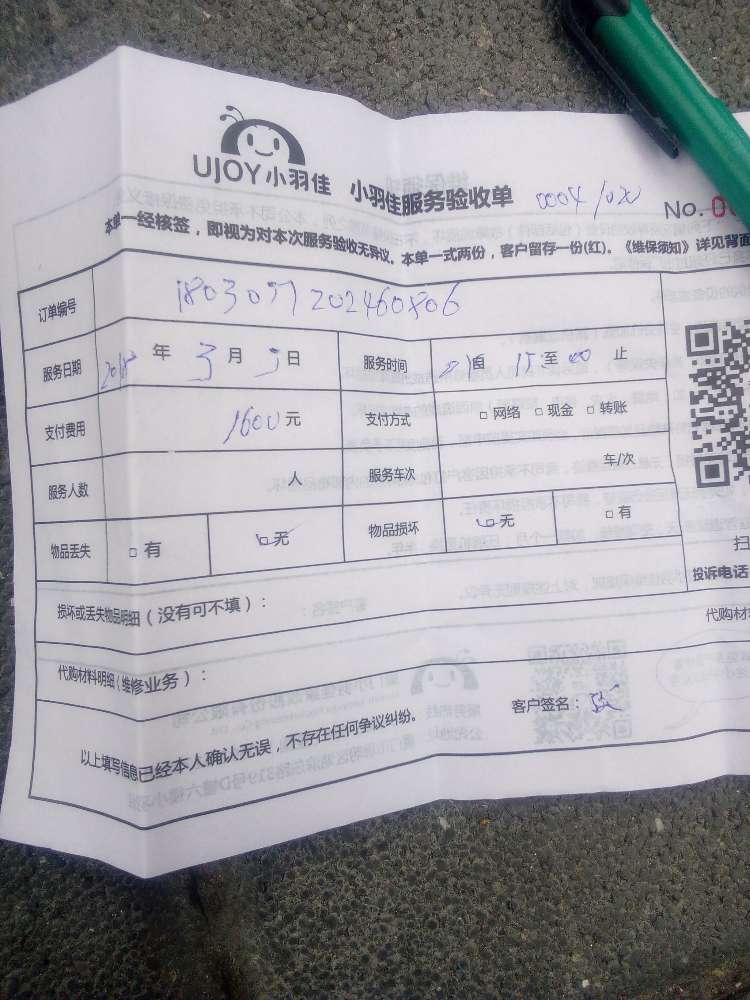 UJOY小羽佳 小羽佳服务验收单 No.
本单一经核签，即视为对本次服务验收无异议。本单一式两份，客户留存一份(红)。《维保须知》详见背面
订单编号
服务日期 2018 年 3 月 5 日 服务时间 自 15 至 止
支付费用 1600 元 支付方式 □ 网络 □ 现金 □ 转账
服务人数 人 服务车次 车/次
物品丢失 □ 有 □ 无 物品损坏 □ 无 □ 有
扫
投诉电话
损坏或丢失物品明细（没有可不填）：
代购材料
代购材料明细（维修业务）：
客户签名：
以上填写信息已经本人确认无误，不存在任何争议纠纷。